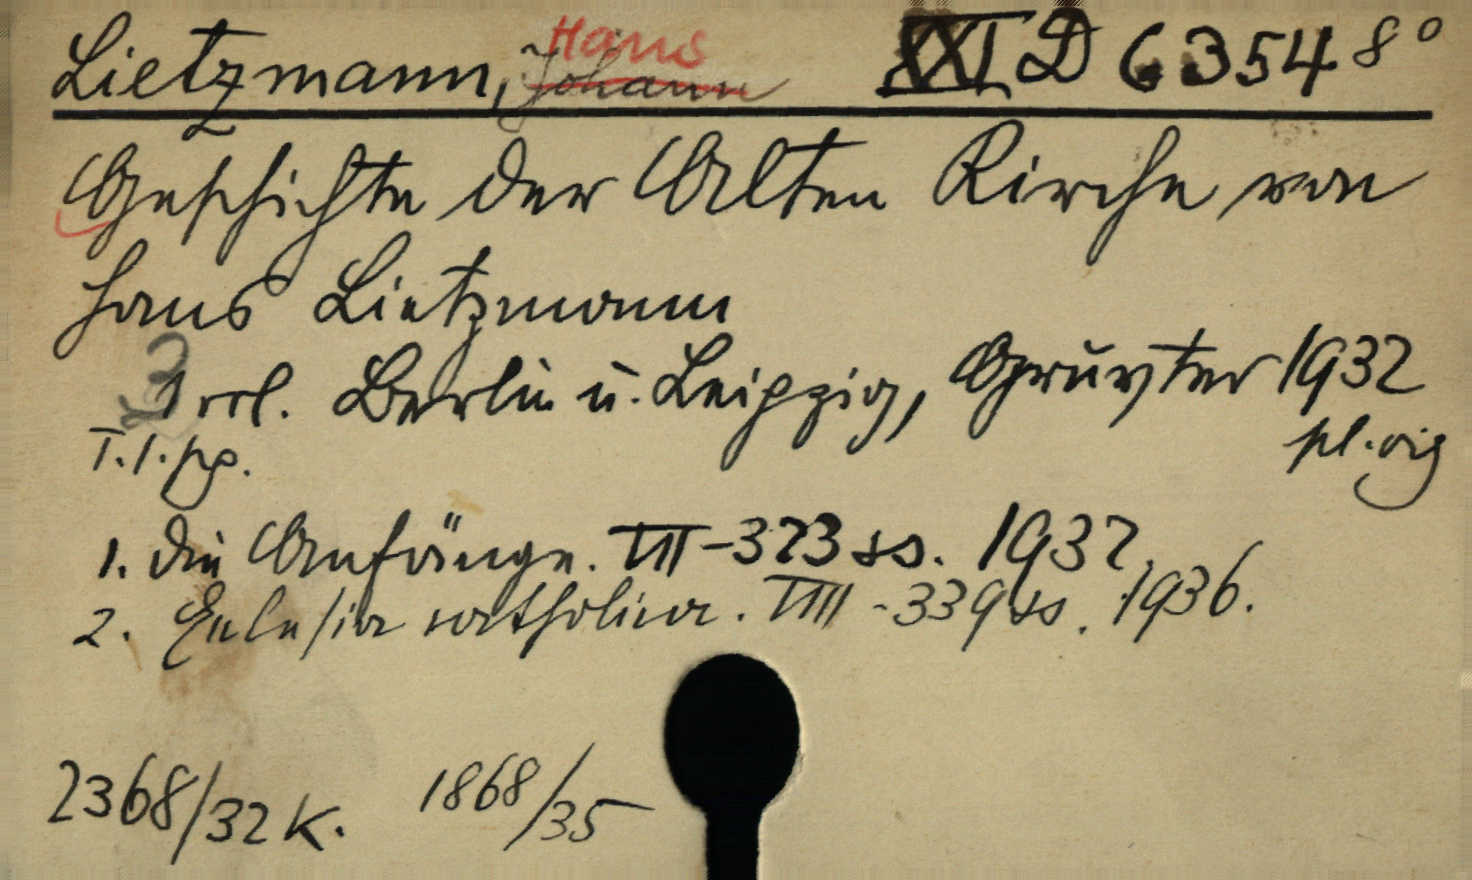 Lietzmann, Hans Johann XXI D 6354 8°
Geschichte der Alten Kirche von
Hans Lietzmann
vol. Berlin u. Leipzig, Gruyter 1932
T.1.sq. pl. rig
1. Die Anfänge. VII-323 ss. 1932.
2. Ecclesia catholica. VIII-339 ss. 1936.
2368/32 K. 1868/35